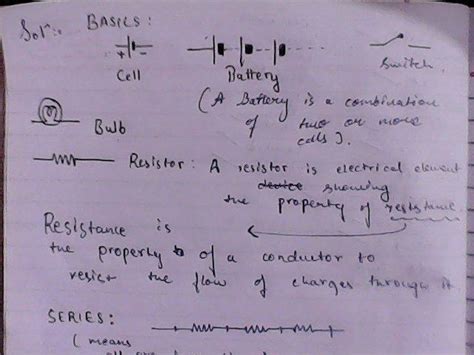 Sol:- BASICS:
+ -
Cell
Battery
Switch
(A Battery is a combination
of two or more
cells).
Bulb
Resistor: A resistor is electrical element
device showing
the property of resistance
Resistance is
the property of a conductor to
resist the flow of charges through it
SERIES:
(means
all are in the